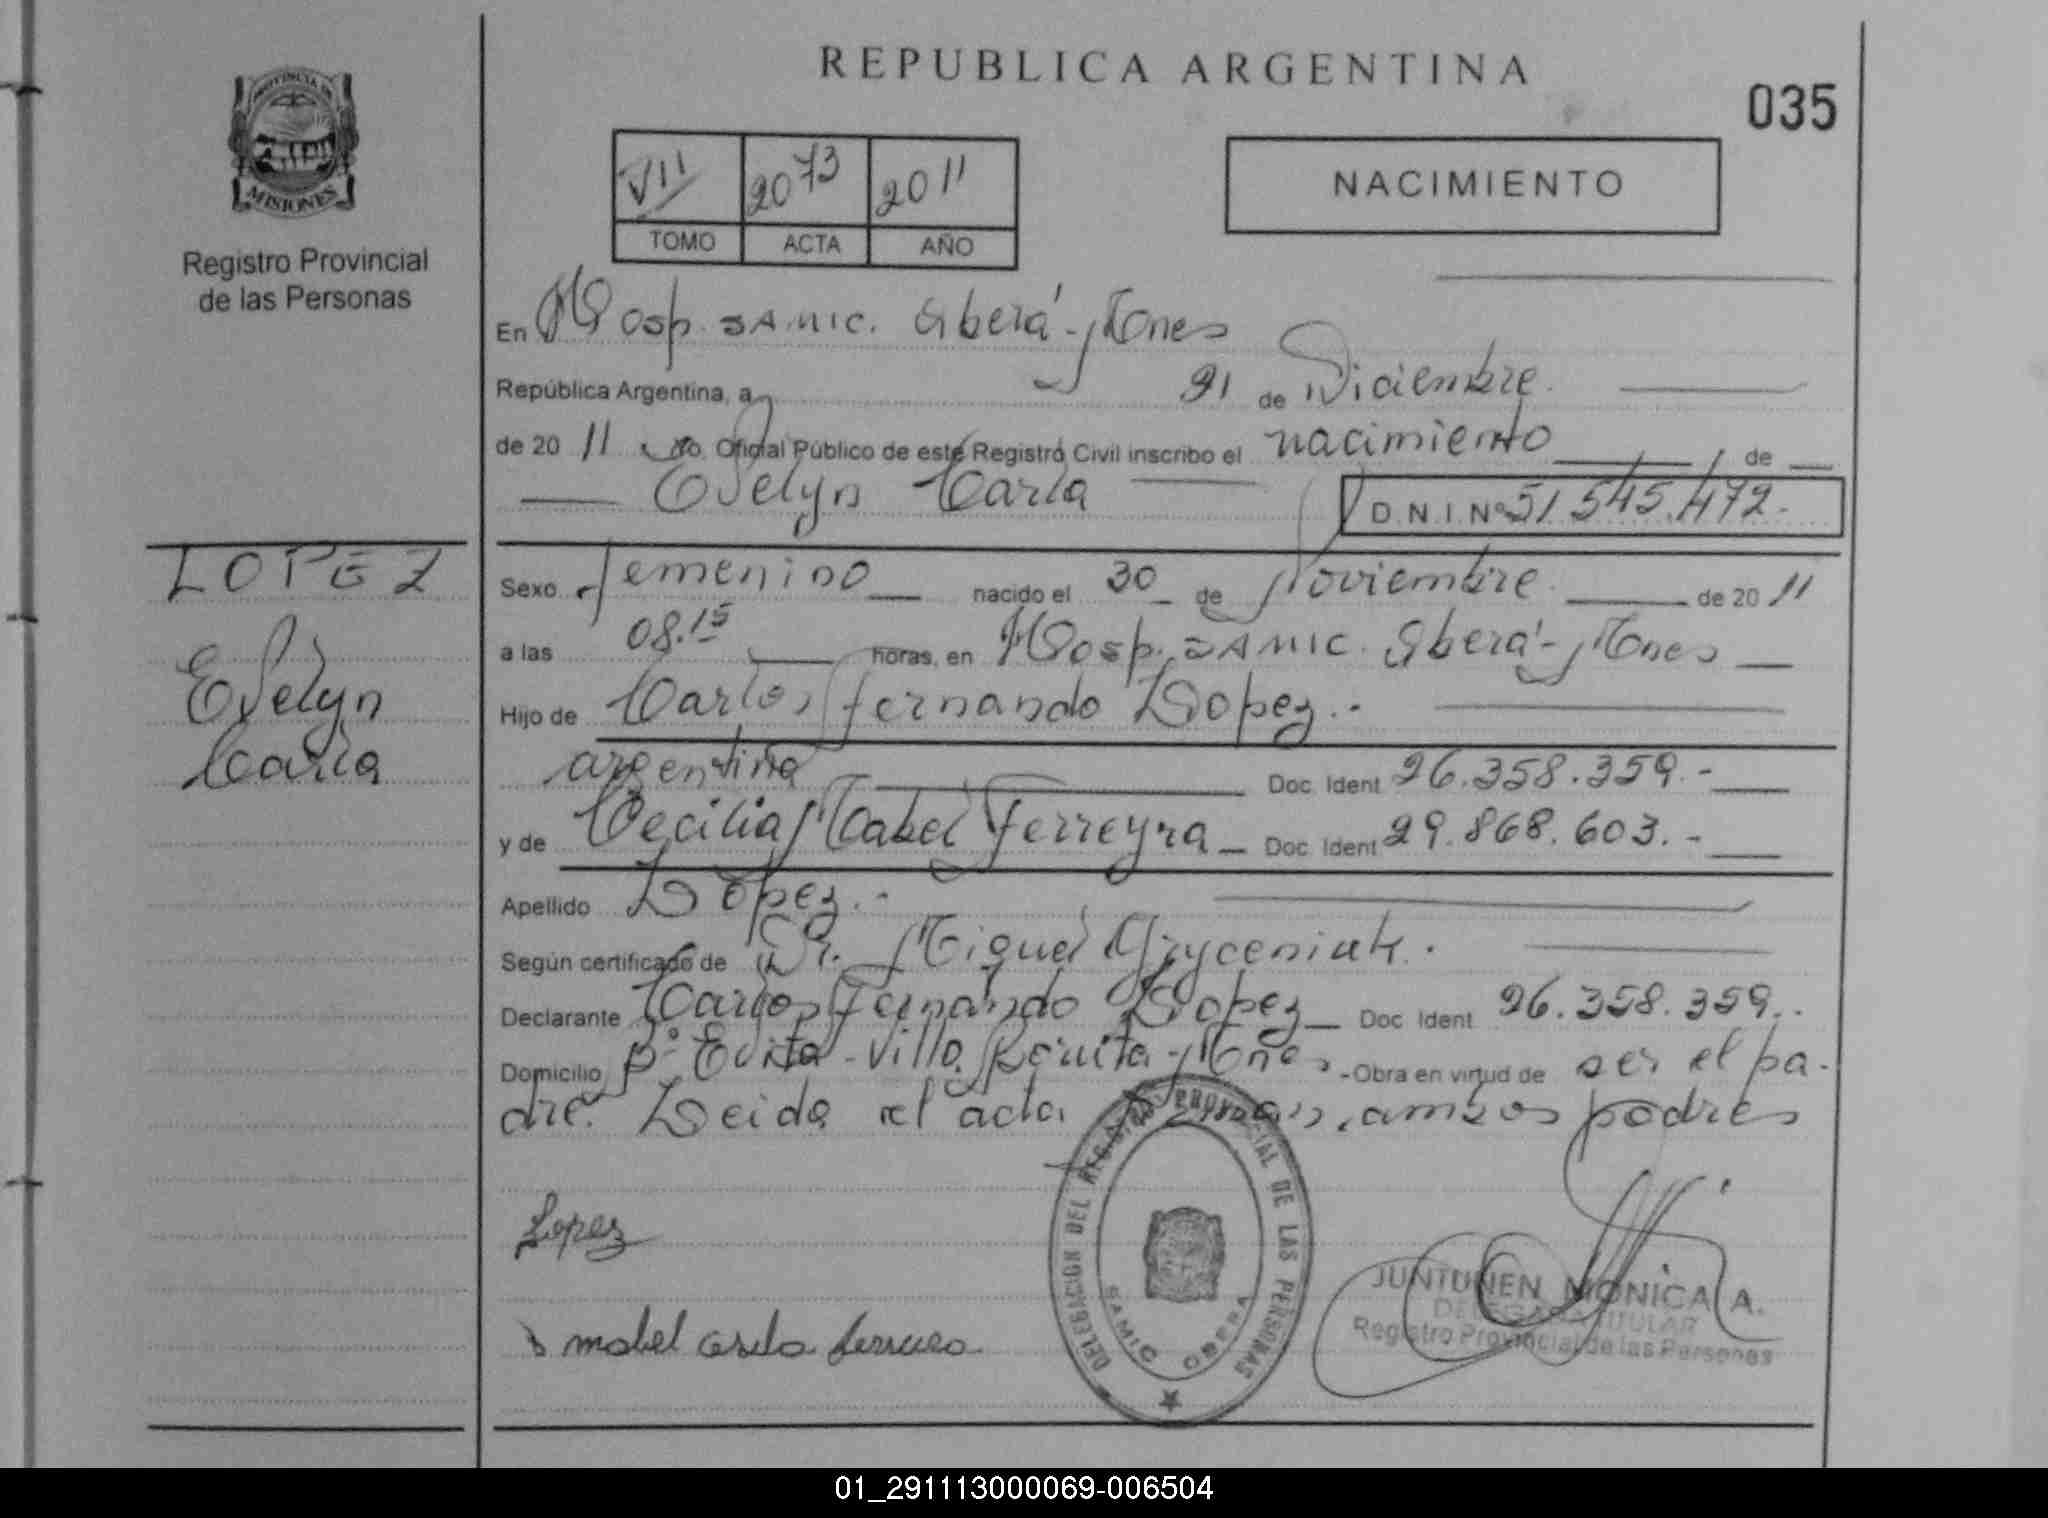 REPUBLICA ARGENTINA
035
PROVINCIA DE
MISIONES
Registro Provincial
de las Personas
VII 2073 2011
TOMO ACTA AÑO
NACIMIENTO
En Hosp. SAMIC. Oberá - Mnes
República Argentina, a 21 de Diciembre.
de 2011 Yo Oficial Público de este Registro Civil inscribo el nacimiento de
Evelyn Carla
D.N.I. Nº 51.545.472.-
LOPEZ
Evelyn
Carla
Sexo femenino nacido el 30 de Noviembre de 2011
a las 08.15 horas, en Hosp. SAMIC. Oberá - Mnes
Hijo de Carlos Fernando Lopez.-
argentina Doc. Ident 26.358.359.-
y de Cecilia Mabel Ferreyra Doc. Ident 29.868.603.-
Apellido Lopez.-
Según certificado de Dr. Miguel Gryceniuk.
Declarante Carlos Fernando Lopez Doc. Ident 26.358.359..
Domicilio Bº Evita - Villa Bonita - Mnes - Obra en virtud de ser el pa-
dre. Leida el acta ambos padres
Lopez
mabel
DELEGACION DEL REGISTRO PROVINCIAL DE LAS PERSONAS
SAMIC OBERA
JUNTUNEN MONICA A.
DELEGADA TITULAR
Registro Provincial de las Personas
01_291113000069-006504